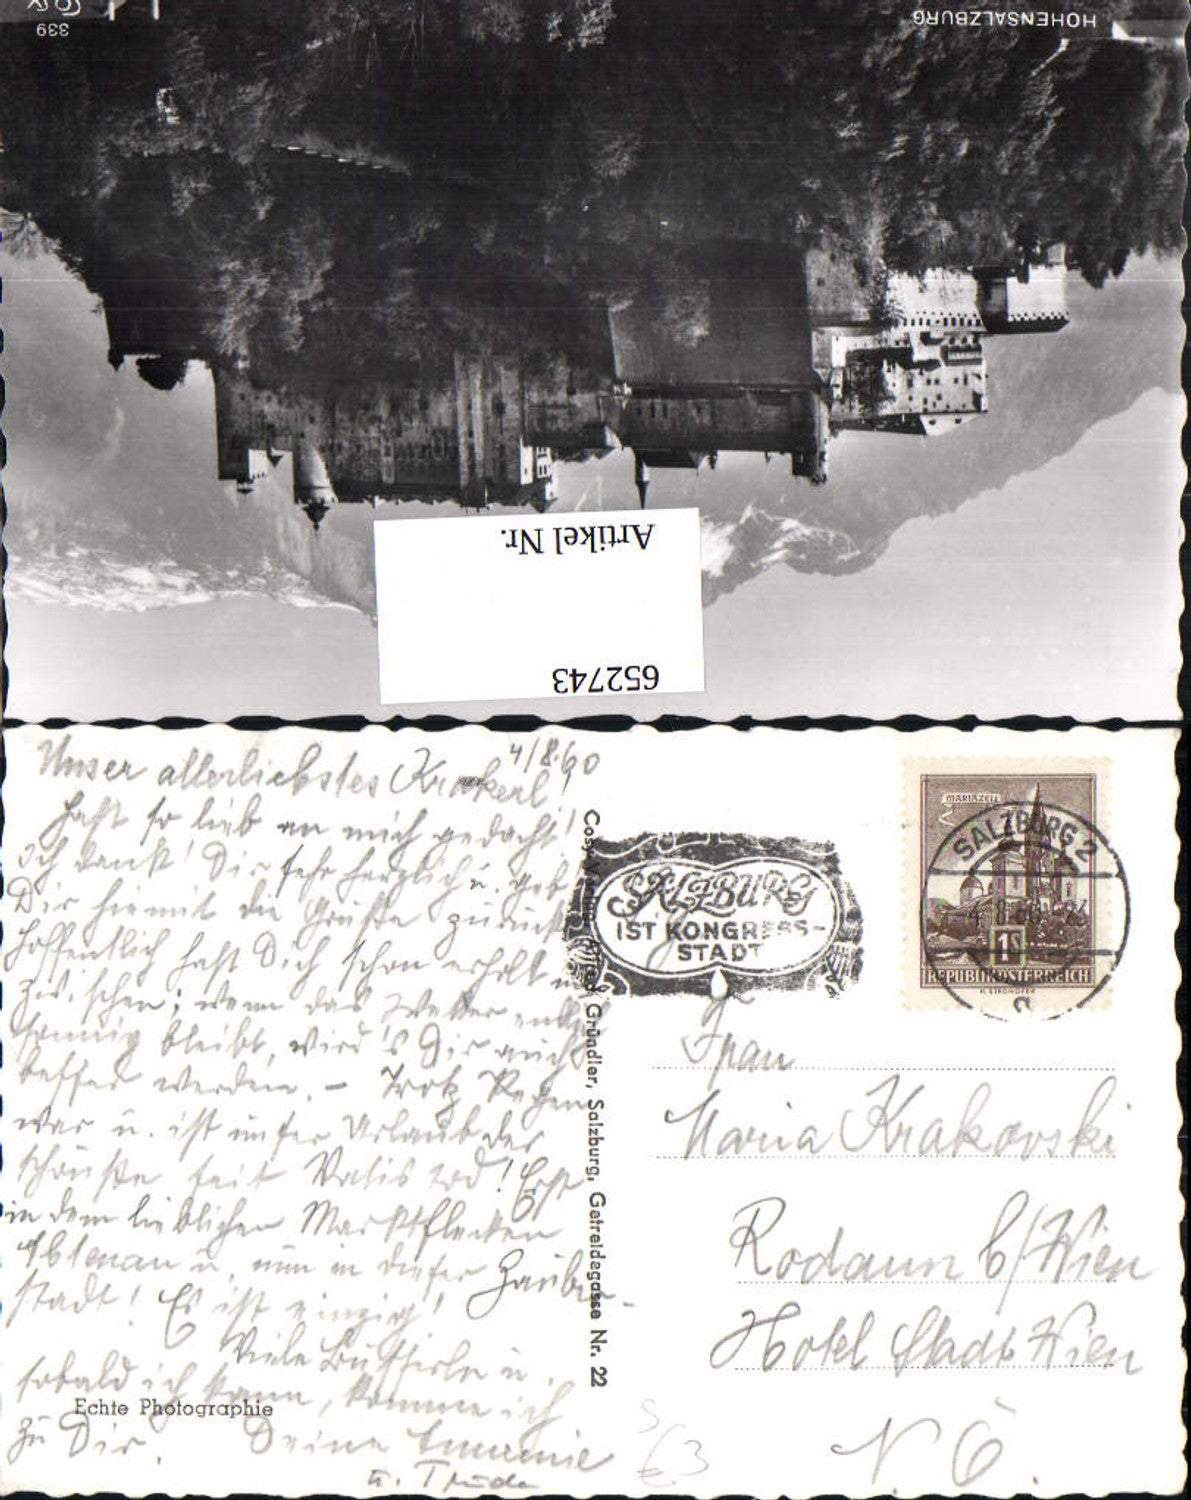 HOHENSALZBURG
339
Artikel Nr.
652743
4/8.60
Unser allerliebstes Krakerl!
Hast so lieb an mich gedacht!
Ich dank' Dir sehr herzlich u. geb'
Dir hiermit die Grüße zurück.
Hoffentlich hast Dich schon erholt in-
zwischen; wenn das Wetter endlich
sonnig bleibt, wird's Dir auch
besser werden. – Trotz Regen
war u. ist unser Urlaub der
schönste seit Vatis Tod! Erst
in dem lieblichen Marktflecken
Abtenau u. nun in dieser Zauber-
stadt! Es ist einzig!
Viele Busserln u.
sobald ich kann, komme ich
zu Dir. Deine
u. Trude
Echte Photographie
Gründler, Salzburg, Getreidegasse Nr. 22
SALZBURG
IST KONGRESS-
STADT
MARIAZELL
SALZBURG 2
1S
REPUBLIK ÖSTERREICH
Frau
Maria Krakovski
Rodaun b/Wien
Hotel Stadt Wien
N. Ö.